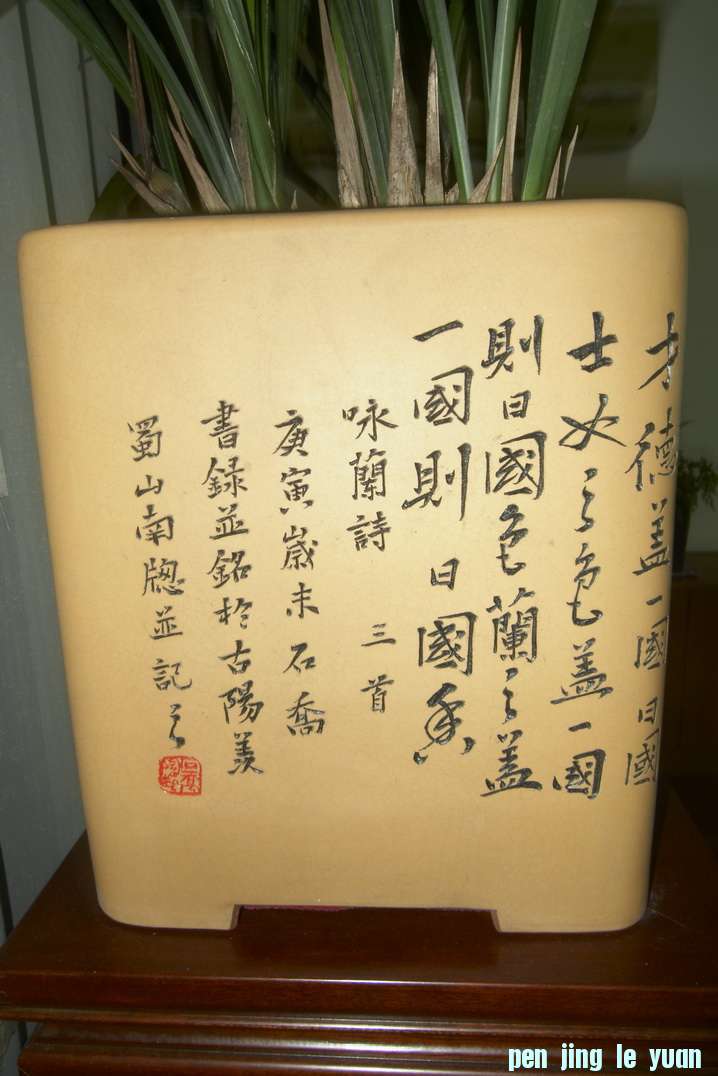 才德蓋一國曰國
士女之色蓋一國
則曰國色蘭之蓋
一國則曰國香
咏蘭詩 三首
庚寅歲末石喬
書録並銘於古陽羨
蜀山南牕並記之
pen jing le yuan